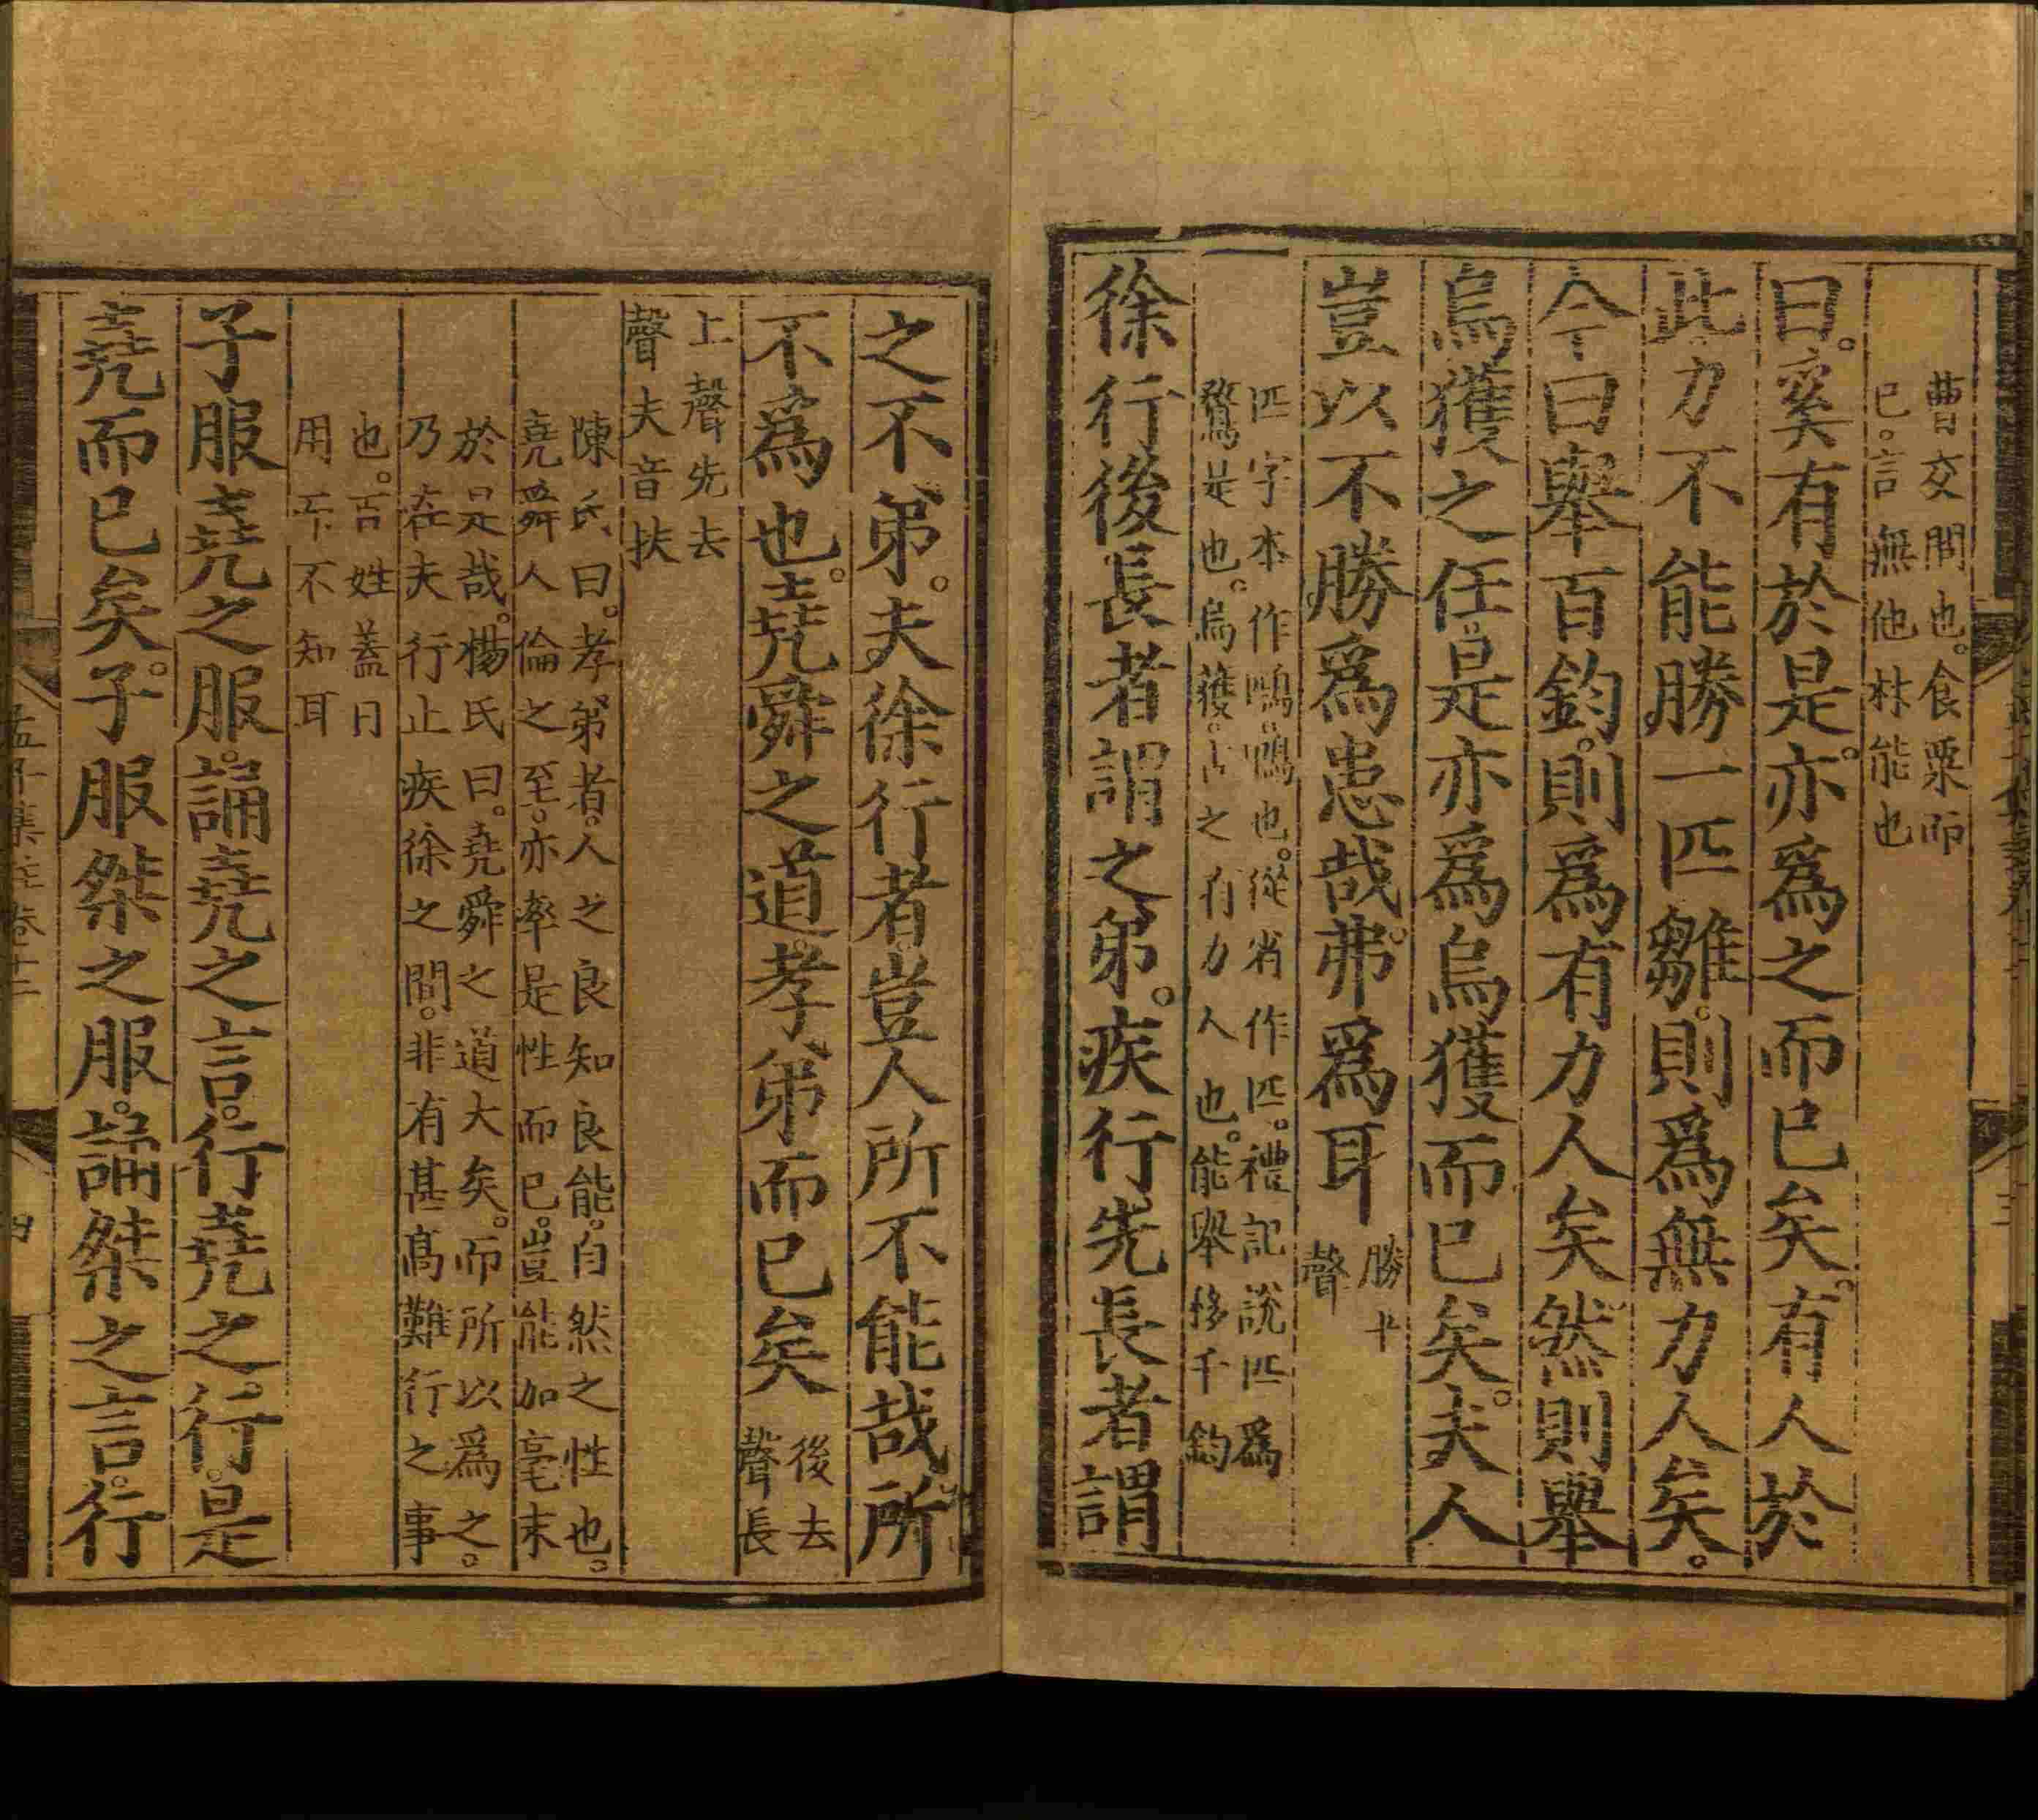 曹交問也。食粟而
已。言無他材能也
曰。奚有於是。亦爲之而已矣。有人於
此。力不能勝一匹雛。則爲無力人矣。
今曰舉百鈞。則爲有力人矣。然則舉
烏獲之任。是亦爲烏獲而已矣。夫人
豈以不勝爲患哉。弗爲耳
勝平
聲
匹字本作鴄。鴨也。從省作匹。禮記說匹爲
鶩是也。烏獲。古之有力人也。能舉移千鈞
徐行後長者謂之弟。疾行先長者謂
之不弟。夫徐行者。豈人所不能哉。所
不爲也。堯舜之道。孝弟而已矣
後去
聲長
上聲先去
聲夫音扶
陳氏曰。孝弟者。人之良知良能。自然之性也。
堯舜人倫之至。亦率是性而已。豈能加毫末
於是哉。楊氏曰。堯舜之道大矣。而所以爲之。
乃在夫行止疾徐之間。非有甚高難行之事
也。百姓蓋日
用而不知耳
子服堯之服。誦堯之言。行堯之行。是
堯而已矣。子服桀之服。誦桀之言。行
孟子集註卷十二
四